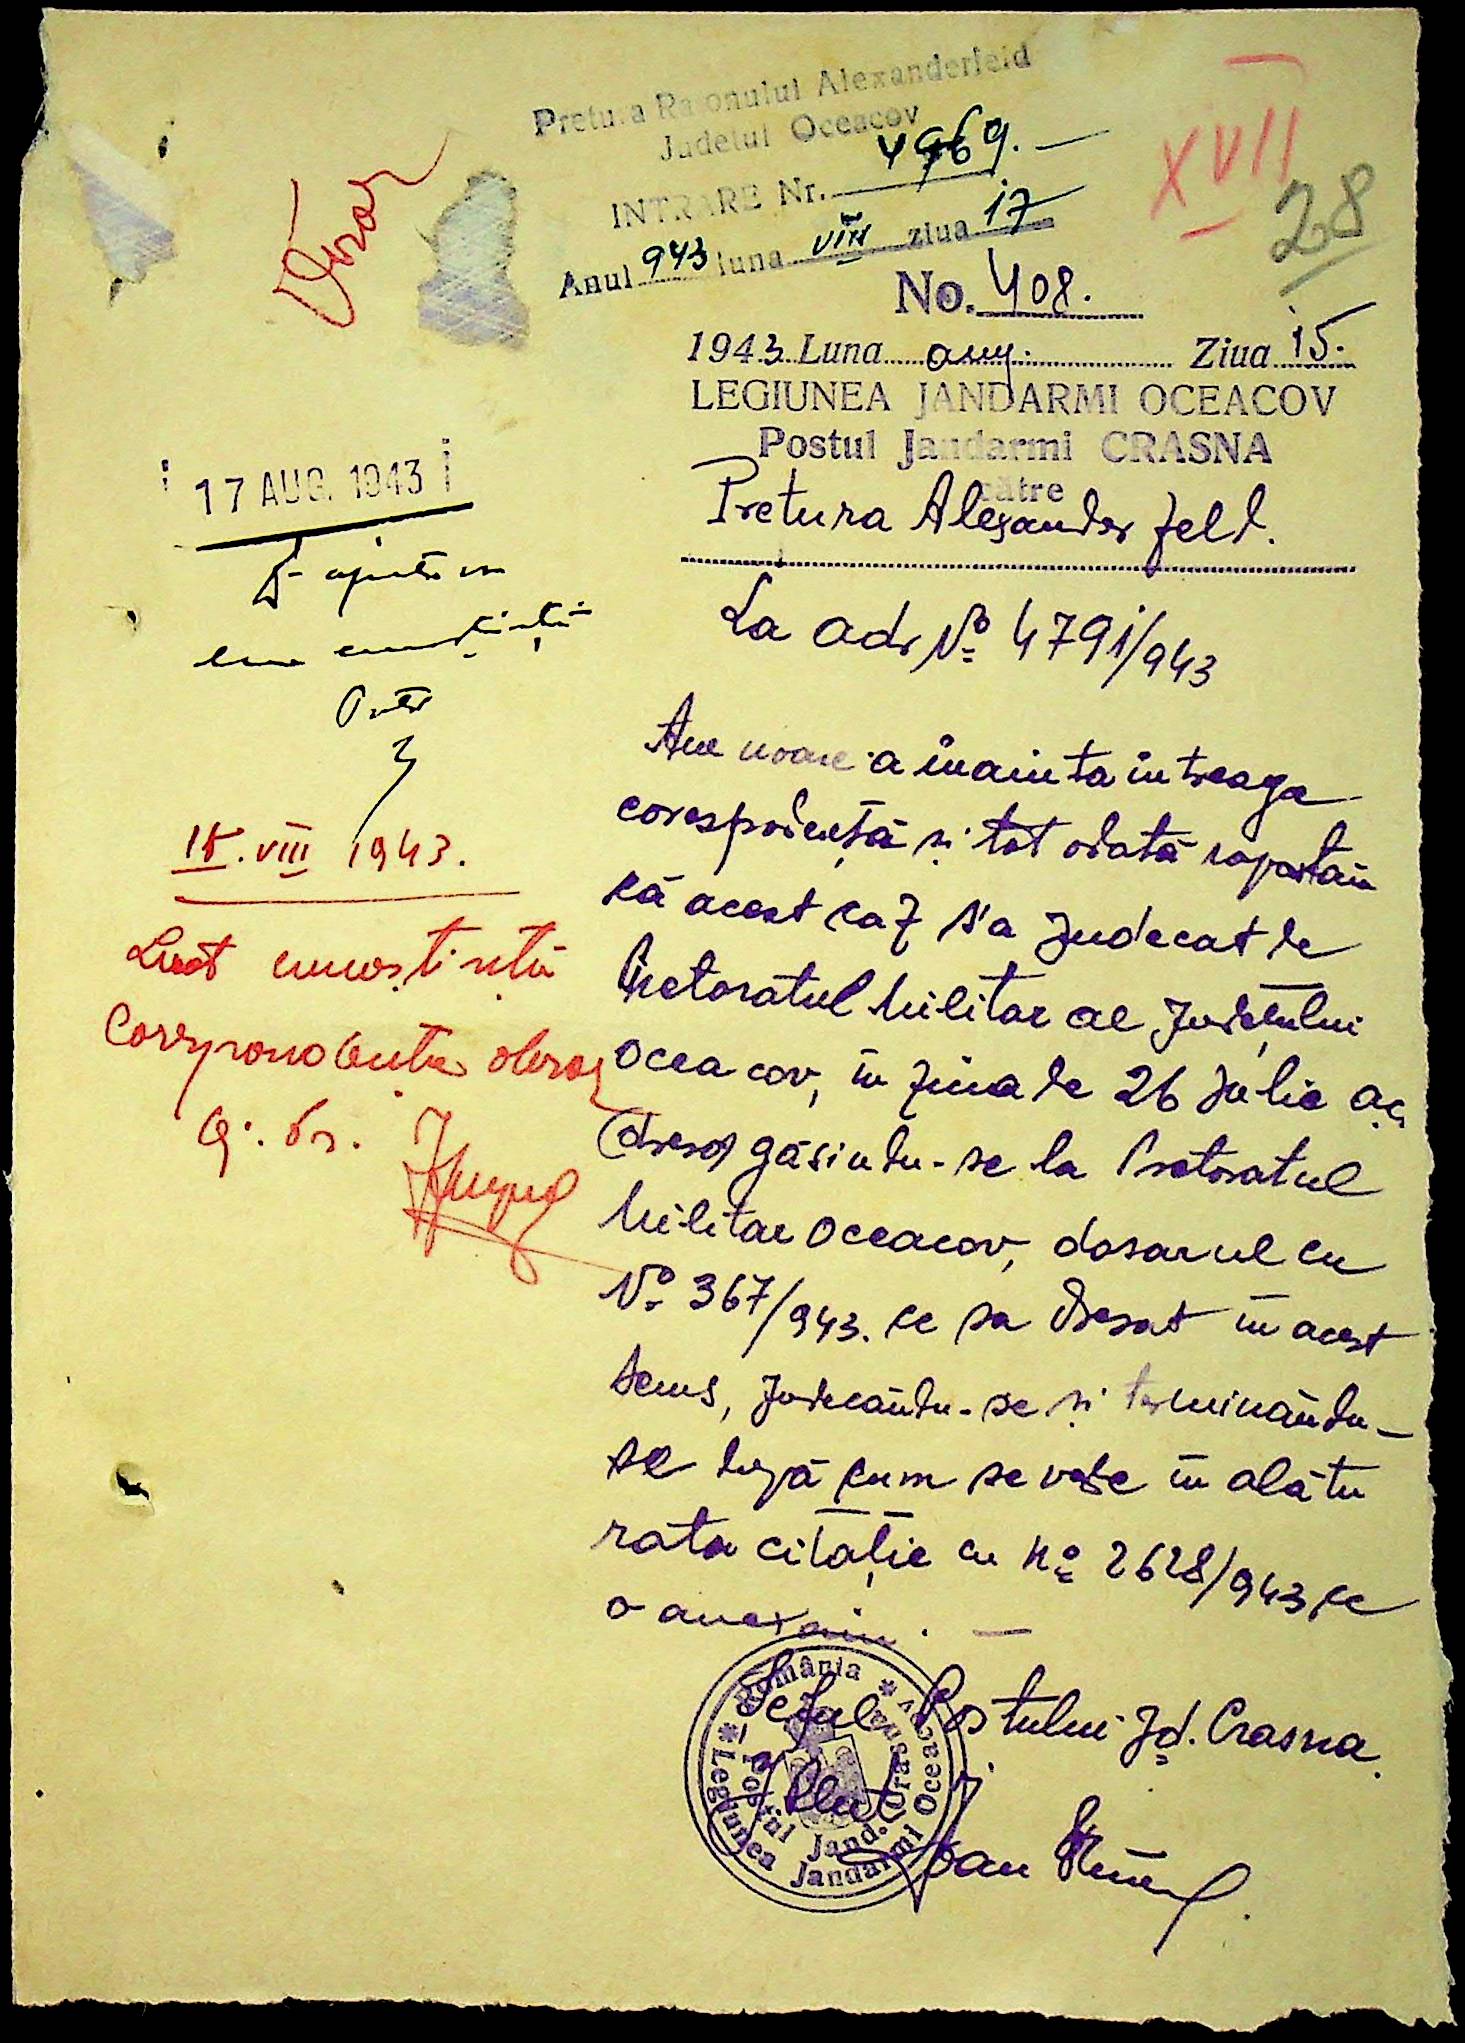 Pretura Raionului Alexanderfeld
Judetul Oceacov
INTRARE Nr. 4969.
Anul 943 luna VIII ziua 17
XVII
28
Dosar
No. 408.
1943 Luna aug. Ziua 15.
LEGIUNEA JANDARMI OCEACOV
Postul Jandarmi CRASNA
către
Pretura Alexanderfeld.
17 AUG. 1943
La adr No 4791/943
Am onoare a înainta intreaga
corespodență și tot odată raportăm
că acest caz s'a judecat de
Pretoratul Militar al Județului
Oceacov, în ziua de 26 Julie a.c.
găsindu-se la Pretoratul
Militar Oceacov, dosarul cu
No 367/943. ce sa dresat in acest
sens, judecându-se și terminându-
se după cum se vede in alătu
rata citație cu No 2628/943 ce
o anexăm.
Șeful Postului Jd. Crasna
Plut
Ioan
România
Legiunea Jandarmi Oceacov
Postul Jand. Crasna
15.VIII 1943.
Luat cunoștință
Corespondența dosar